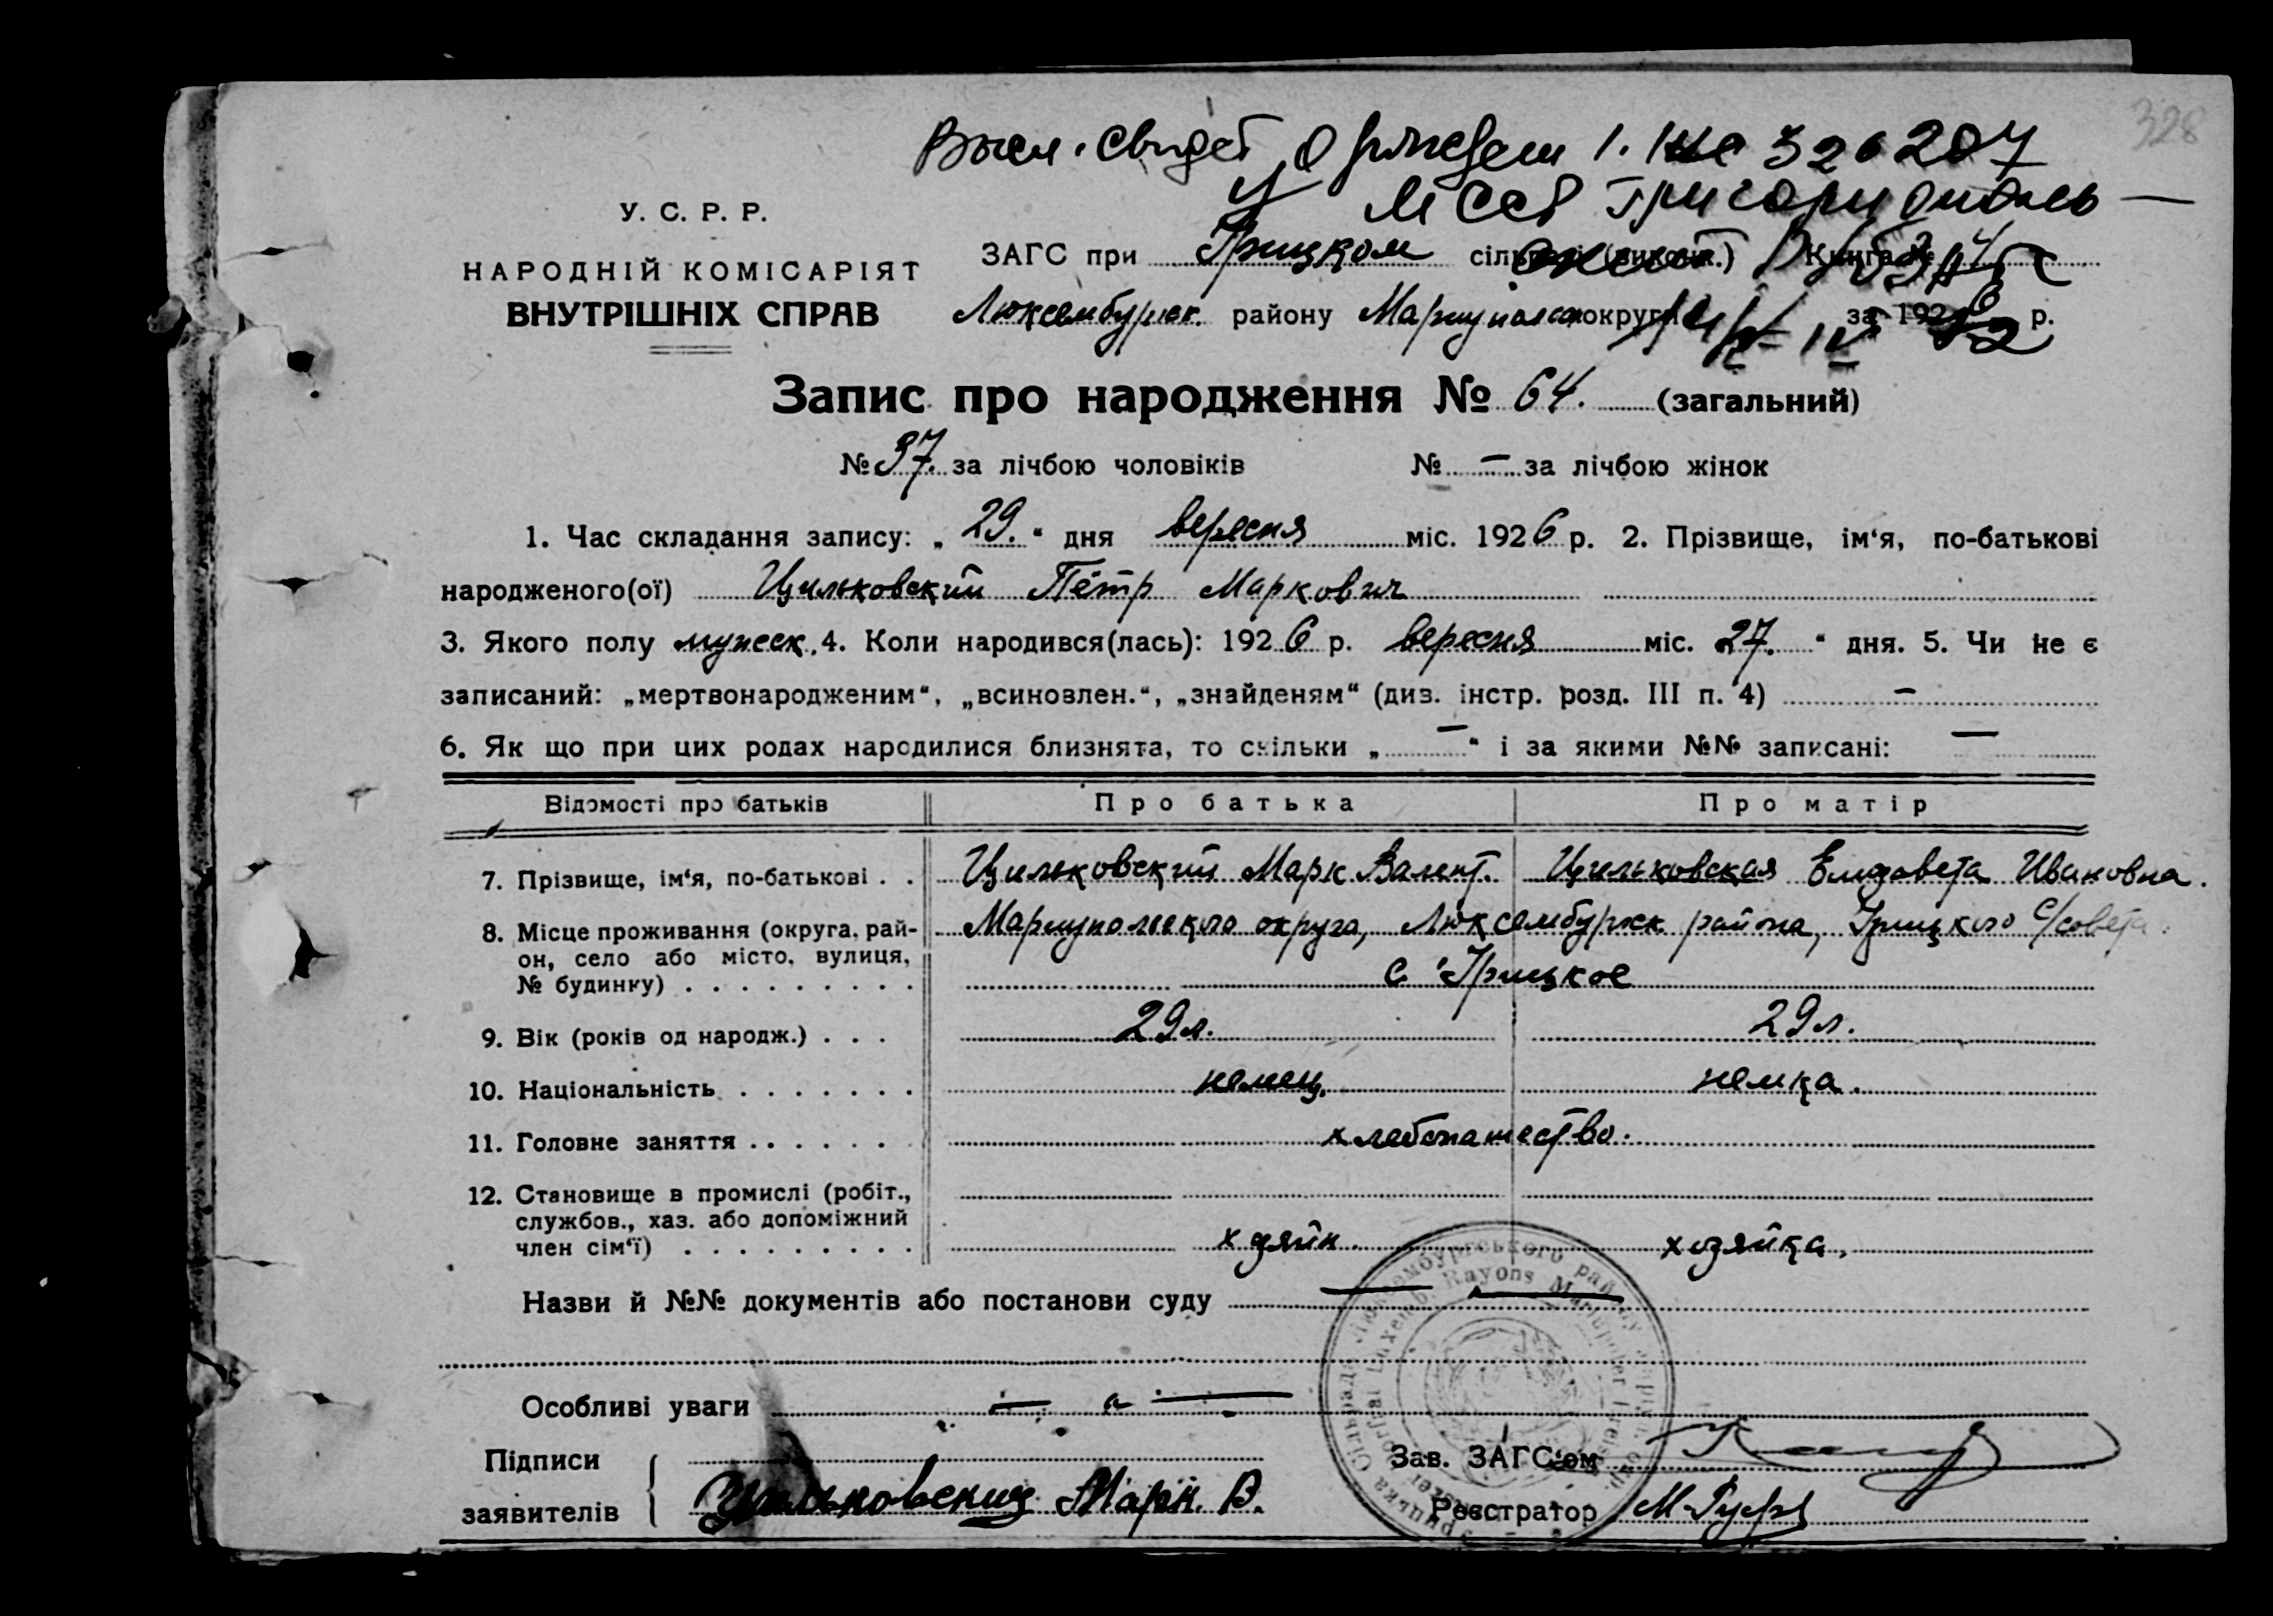 328
Высл. свидет о рожден 1. 326207
МССР Григориополь
У. С. Р. Р.
НАРОДНІЙ КОМІСАРІЯТ
ВНУТРІШНІХ СПРАВ
ЗАГС при Грицком сільраді (викона.) Книга №
Люксембургск. району Мариупольск округи за 1926 р.
Запис про народження № 64. (загальний)
№ 37. за лічбою чоловіків № — за лічбою жінок
1. Час складання запису: „ 29. “ дня вересня міс. 1926 р. 2. Прізвище, ім‘я, по-батькові
народженого(ої) Цильковский Пётр Маркович
3. Якого полу мужеск. 4. Коли народився(лась): 1926 р. вересня міс. 27. “ дня. 5. Чи не є
записаний: „мертвонародженим“, „всиновлен.“, „знайденям“ (див. інстр. розд. III п. 4) —
6. Як що при цих родах народилися близнята, то скільки „ — “ і за якими №№ записані: —
Відомості про батьків Про батька Про матір
7. Прізвище, ім‘я, по-батькові . . Цильковский Марк Валент. Цильковская Елизавета Ивановна.
8. Місце проживання (округа, рай- Мариупольского округа, Люксембургск района, Грицкого с/совета.
он, село або місто, вулиця,
№ будинку) . . . . . . . . . с Грицкое
9. Вік (років од народж.) . . . 29 л. 29 л.
10. Національність . . . . . . . немец. немка.
11. Головне заняття . . . . . . хлебопашество.
12. Становище в промислі (робіт.,
службов., хаз. або допоміжний
член сім‘ї) . . . . . . . . . хозяин. хозяйка.
Назви й №№ документів або постанови суду — —
Особливі уваги — „ —
Підписи Зав. ЗАГС‘ом
заявителів Цильковский Марк. В. Реєстратор